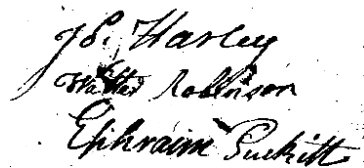 Js. Harley
Walter Robinson
Ephraim Puckitt